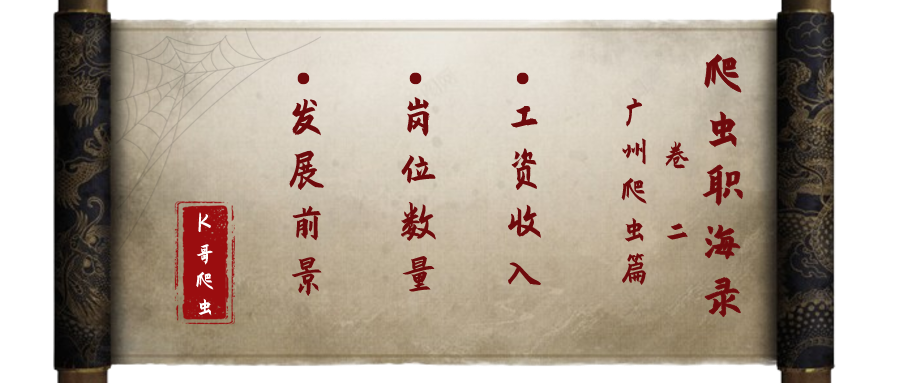 爬虫职海录
卷二
广州爬虫篇
•工资收入
•岗位数量
•发展前景
K哥爬虫